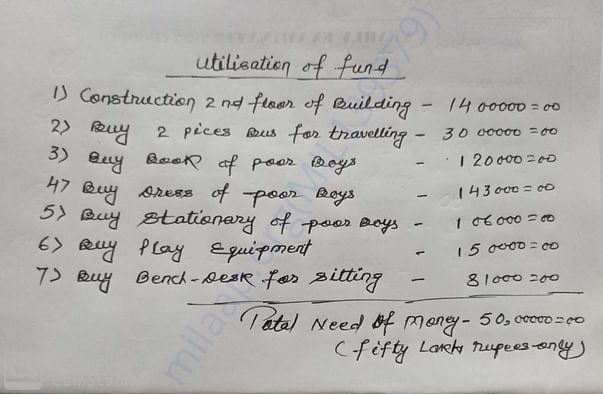 Utilisation of fund
1) Construction 2nd floor of Building - 1400000=00
2) Buy 2 pices Bus for travelling - 3000000=00
3) Buy Book of poor Boys - 120000=00
4) Buy Dress of poor Boys - 143000=00
5) Buy Stationary of poor Boys - 106000=00
6) Buy Play Equipment - 150000=00
7) Buy Bench-Desk for Sitting - 81000=00
Total Need Of Money - 50,00000=00
(fifty Lakh rupees only)
CamScanner